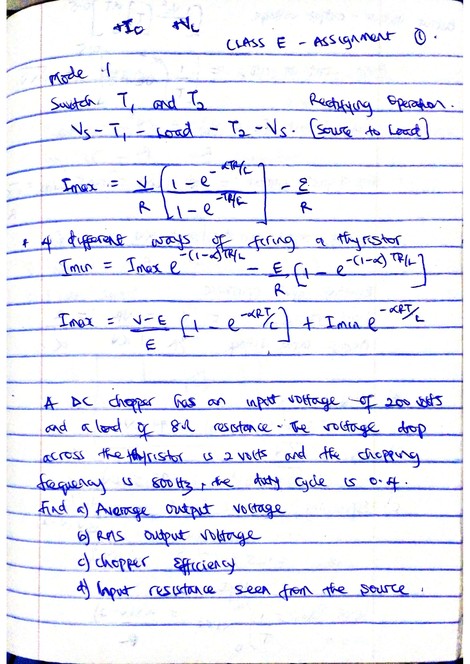 +Io +VL
CLASS E - Assignment ①.
Mode 1
Switch T1 and T2 Rectifying Operation.
Vs - T1 - Load - T2 - Vs. [Source to Load]
Imax = V/R [ (1 - e^-αTR/L) / (1 - e^-TR/L) ] - E/R
* 4 different ways of firing a thyristor
Imin = Imax e^-(1-α)TR/L - E/R [1 - e^-(1-α)TR/L]
Imax = (V-E)/E [1 - e^-αRT/L] + Imin e^-αRT/L
A DC chopper has an input voltage of 200 volts
and a load of 8Ω resistance. The voltage drop
across the thyristor is 2 volts and the chopping
frequency is 800Hz, the duty cycle is 0.4.
Find a) Average output voltage
b) RMS output voltage
c) chopper efficiency
d) Input resistance seen from the source.